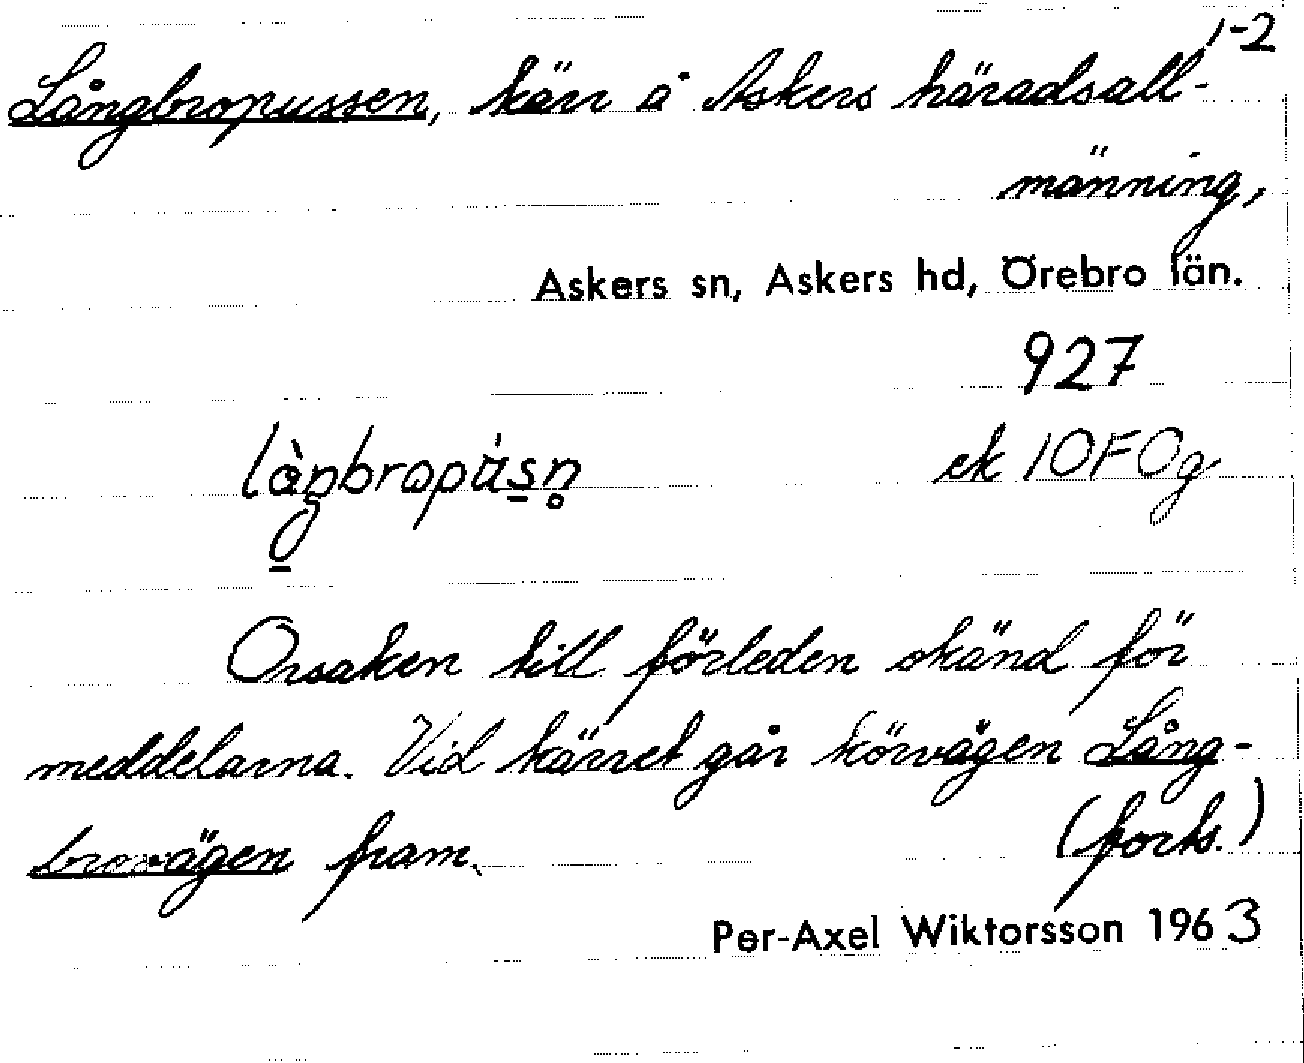 1-2
Långbropussen, kärr å Askers häradsall-
männing,
Askers sn, Askers hd, Örebro län.
927
ek 10F0g
Orsaken till förleden okänd för
meddelarna. Vid kärret går körvägen Lång-
brovägen fram.
(forts.)
Per-Axel Wiktorsson 1963